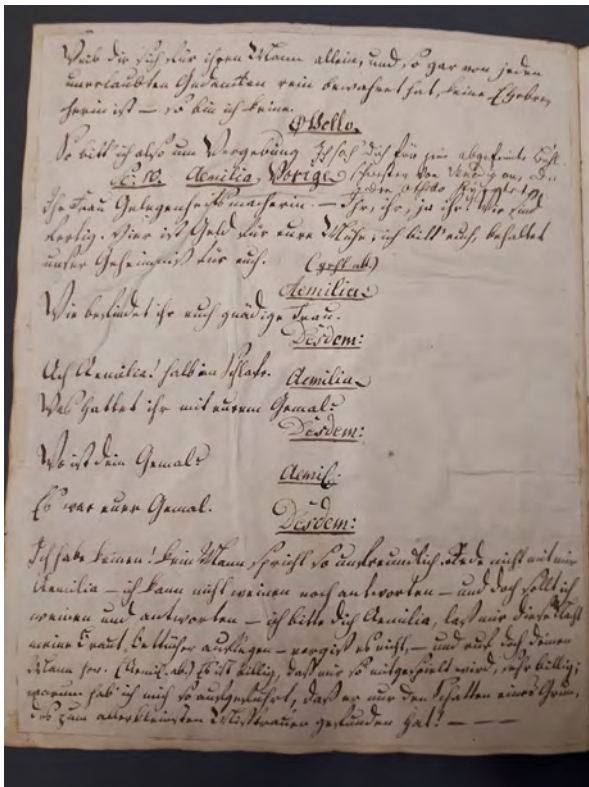 Weib die sich für ihren Mann allein, und so gar von jeden
unerlaubten Gedanken rein bewahret hat, keine Ehebre-
cherin ist — so bin ich keine.
Othello.
So bitt' ich also um Vergebung Ich sah' dich für jene abgefeimte Buhl
Sc: 10. Aemilia, Vorige. schwester von Venedig an, die
den Othello
Ihr Frau Gelegenheitsmacherin. — Ihr, ihr, ja ihr! Wir sind
fertig. Hier ist Geld für eure Mühe, ich bitt' euch, behaltet
unser Geheimniß für euch. (geht ab.)
Aemilia:
Wie befindet ihr euch gnädige Frau.
Desdem:
Ach Aemilia! halb im Schlafe.
Aemilia
Was hattet ihr mit eurem Gemal?
Desdem:
Wo ist dein Gemal?
Aemil:
Es war euer Gemal.
Desdem:
Ich habe keinen! kein Mann spricht so unfreundlich. Rede nicht mit mir
Aemilia — ich kann nicht weinen noch antworten — und doch sollt ich
weinen und antworten — ich bitte dich Aemilia, laß mir diese Nacht
meine Braut-bettücher auflegen — vergiß es nicht, — und ruf doch deinen
Mann her. (Aemil. ab.) Es ist billig, daß mir so mitgespielt wird, sehr billig;
warum hab' ich mich so aufgeführt, daß er nur den Schatten eines Grun-
des zum allerkleinsten Mistrauen gefunden hat! — — —